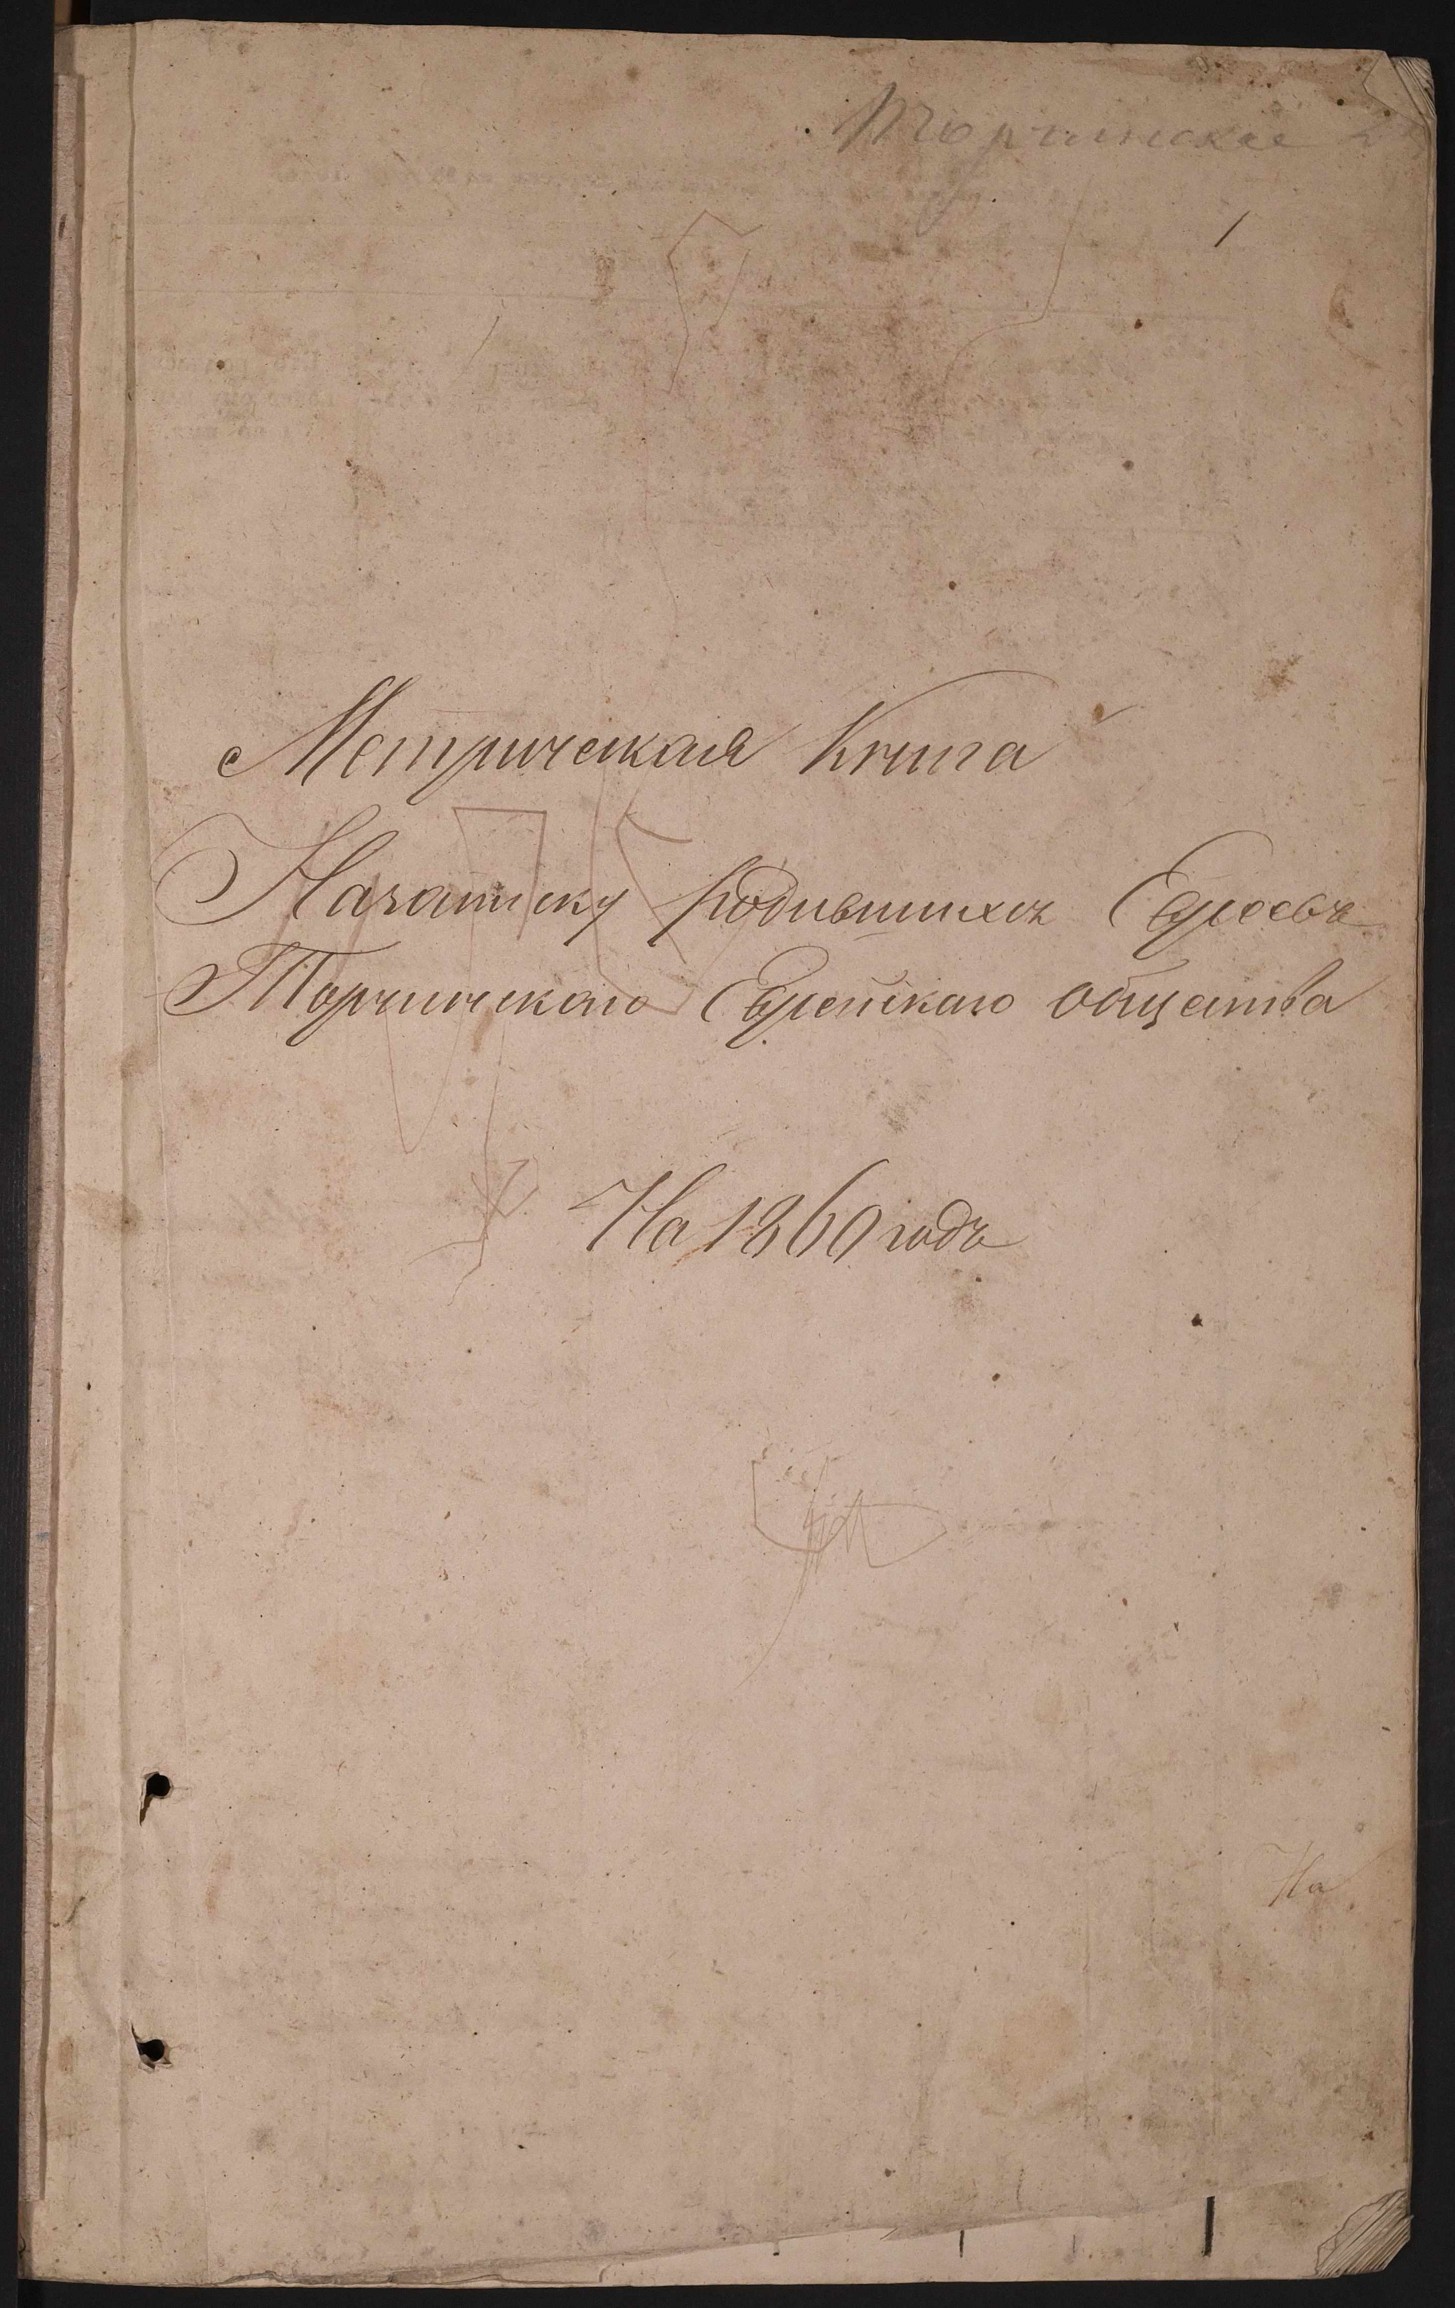 Торчинское
1
Метрическая Книга
Началиску Родившихся Евреевъ
Торчинскаго Еврейскаго общества
На 1860 годъ
На